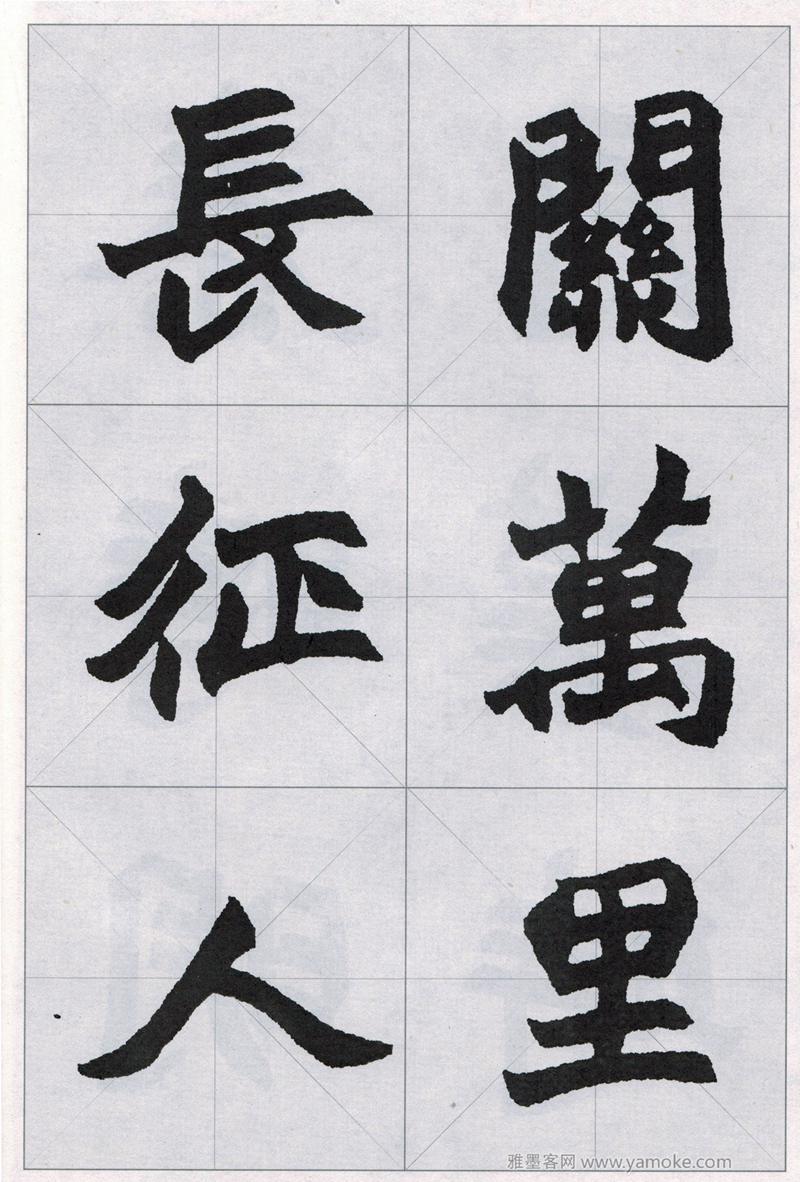 關萬里
長征人
雅墨客网 www.yamoke.com